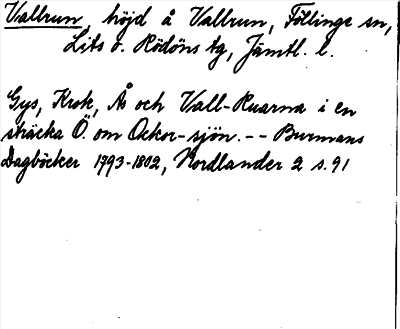 Vallrun, höjd å Vallrun, Föllinge sn,
Lits o. Rödöns tg, Jämtl. l.
Gys, Krok, Ås och Vall-Ruarna i en
sträcka Ö. om Ockor-sjön. -- Burmans
Dagböcker 1793-1802, Nordlander 2 s. 91